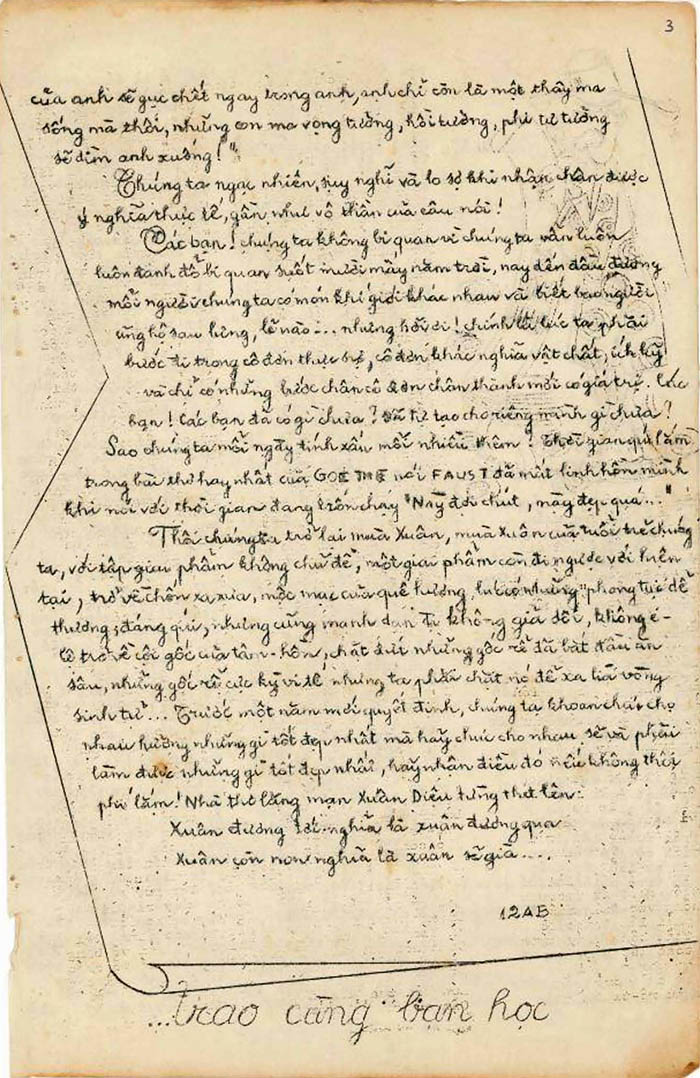 3
của anh sẽ gục chết ngay trong anh, anh chỉ còn là một thây ma
sống mà thôi, những con ma vọng tưởng, hồi tưởng, phi tư tưởng
sẽ dìm anh xuống!"
Chúng ta ngạc nhiên, suy nghĩ và lo sợ khi nhận chân được
ý nghĩa thực tế, gần như vô thần của câu nói!
Các bạn! chúng ta không bi quan vì chúng ta vẫn luôn
luôn đánh đổ bi quan suốt mười mấy năm trời, nay đến đầu đường
mỗi người chúng ta có món khí giới khác nhau và biết bao người
ủng hộ sau lưng, lẽ nào... nhưng hỡi ơi! chính là lúc ta phải
bước đi trong cô đơn thực sự, cô đơn khác nghĩa vật chất, ích kỷ
và chỉ có những bước chân cô đơn chân thành mới có giá trị. Các
bạn! Các bạn đã có gì chưa? Đã tự tạo cho riêng mình gì chưa?
Sao chúng ta mỗi ngày tính xấu mỗi nhiều thêm? Thời gian quí lắm
trong bài thơ hay nhất của GOETHE nói FAUST đã mất linh hồn mình
khi nói với thời gian đang trốn chạy "Này đợi chút, mày đẹp quá..."
Thôi chúng ta trở lại mùa Xuân, mùa Xuân của tuổi trẻ chúng
ta, với tập giai phẩm không chủ đề, một giai phẩm còn đi ngược với hiện
tại, trở về chốn xa xưa, mộc mạc của quê hương, lúc có những phong tục dễ
thương, đáng quí, nhưng cũng mạnh dạn Tự không giả dối, không é-
lệ trở về cội gốc của tâm-hồn, chặt đứt những gốc rễ đã bắt đầu ăn
sâu, những gốc rễ cực kỳ vi tế nhưng ta phải chặt nó để xa lìa vòng
sinh tử... Trước một năm mới quyết định, chúng ta khoan chúc cho
nhau hưởng những gì tốt đẹp nhất mà hãy chúc cho nhau sẽ và phải
làm được những gì tốt đẹp nhất, hãy nhận điều đó nếu không thì
phí lắm! Nhà thơ lãng mạn Xuân Diệu từng thốt lên:
Xuân đương tới nghĩa là xuân đương qua
Xuân còn non nghĩa là xuân sẽ già....
12AB
...trao cùng bạn học